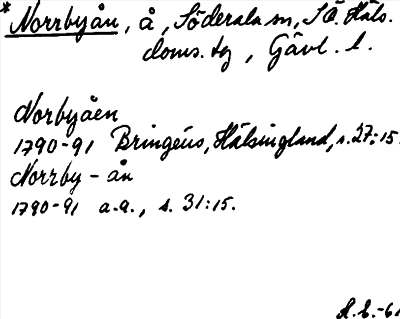 * Norrbyån, å, Söderala sn, Sö. Häls.
doms. tg, Gävl. l.
Norbyåen
1790-91 Bringéus, Hälsingland, s. 27:15.
Norrby-ån
1790-91 a.a., s. 31:15.
H.C.-61